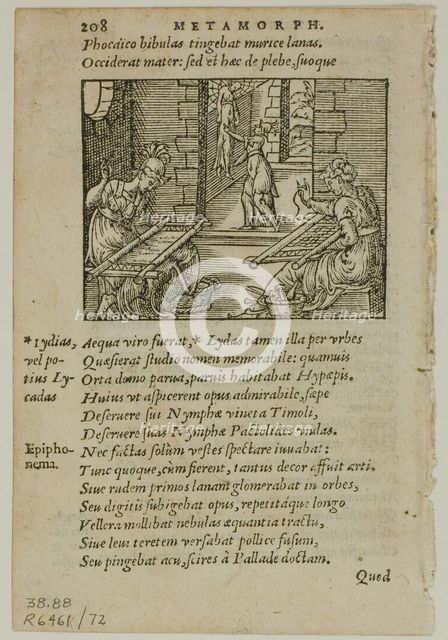 208 METAMORPH.
Phocaico bibulas tingebat murice lanas.
Occiderat mater: sed et hæc de plebe, suoque
Heritage Heritage Heritage
Heritage Heritage
* Lydias, vel potius Lycadas
Aequa viro fuerat, * Lydas tamen illa per vrbes
Quæsierat studio nomen memorabile: quamuis
Orta domo parua, paruis habitabat Hypæpis.
Huius vt aspicerent opus admirabile, sæpe
Deseruere sui Nymphæ vineta Timoli,
Deseruere suas Nymphæ Pactolides vndas.
Epiphonema.
Nec factas solùm vestes spectare iuuabat:
Tunc quoque, cùm fierent, tantus decor affuit arti.
Siue rudem primos lanam glomerabat in orbes,
Seu digitis subigebat opus, repetitáque longo
Vellera mollibat nebulas æquantia tractu,
Siue leui teretem versabat pollice fusum,
Seu pingebat acu, scires à Pallade doctam.
Quod
38.88
R6461/72